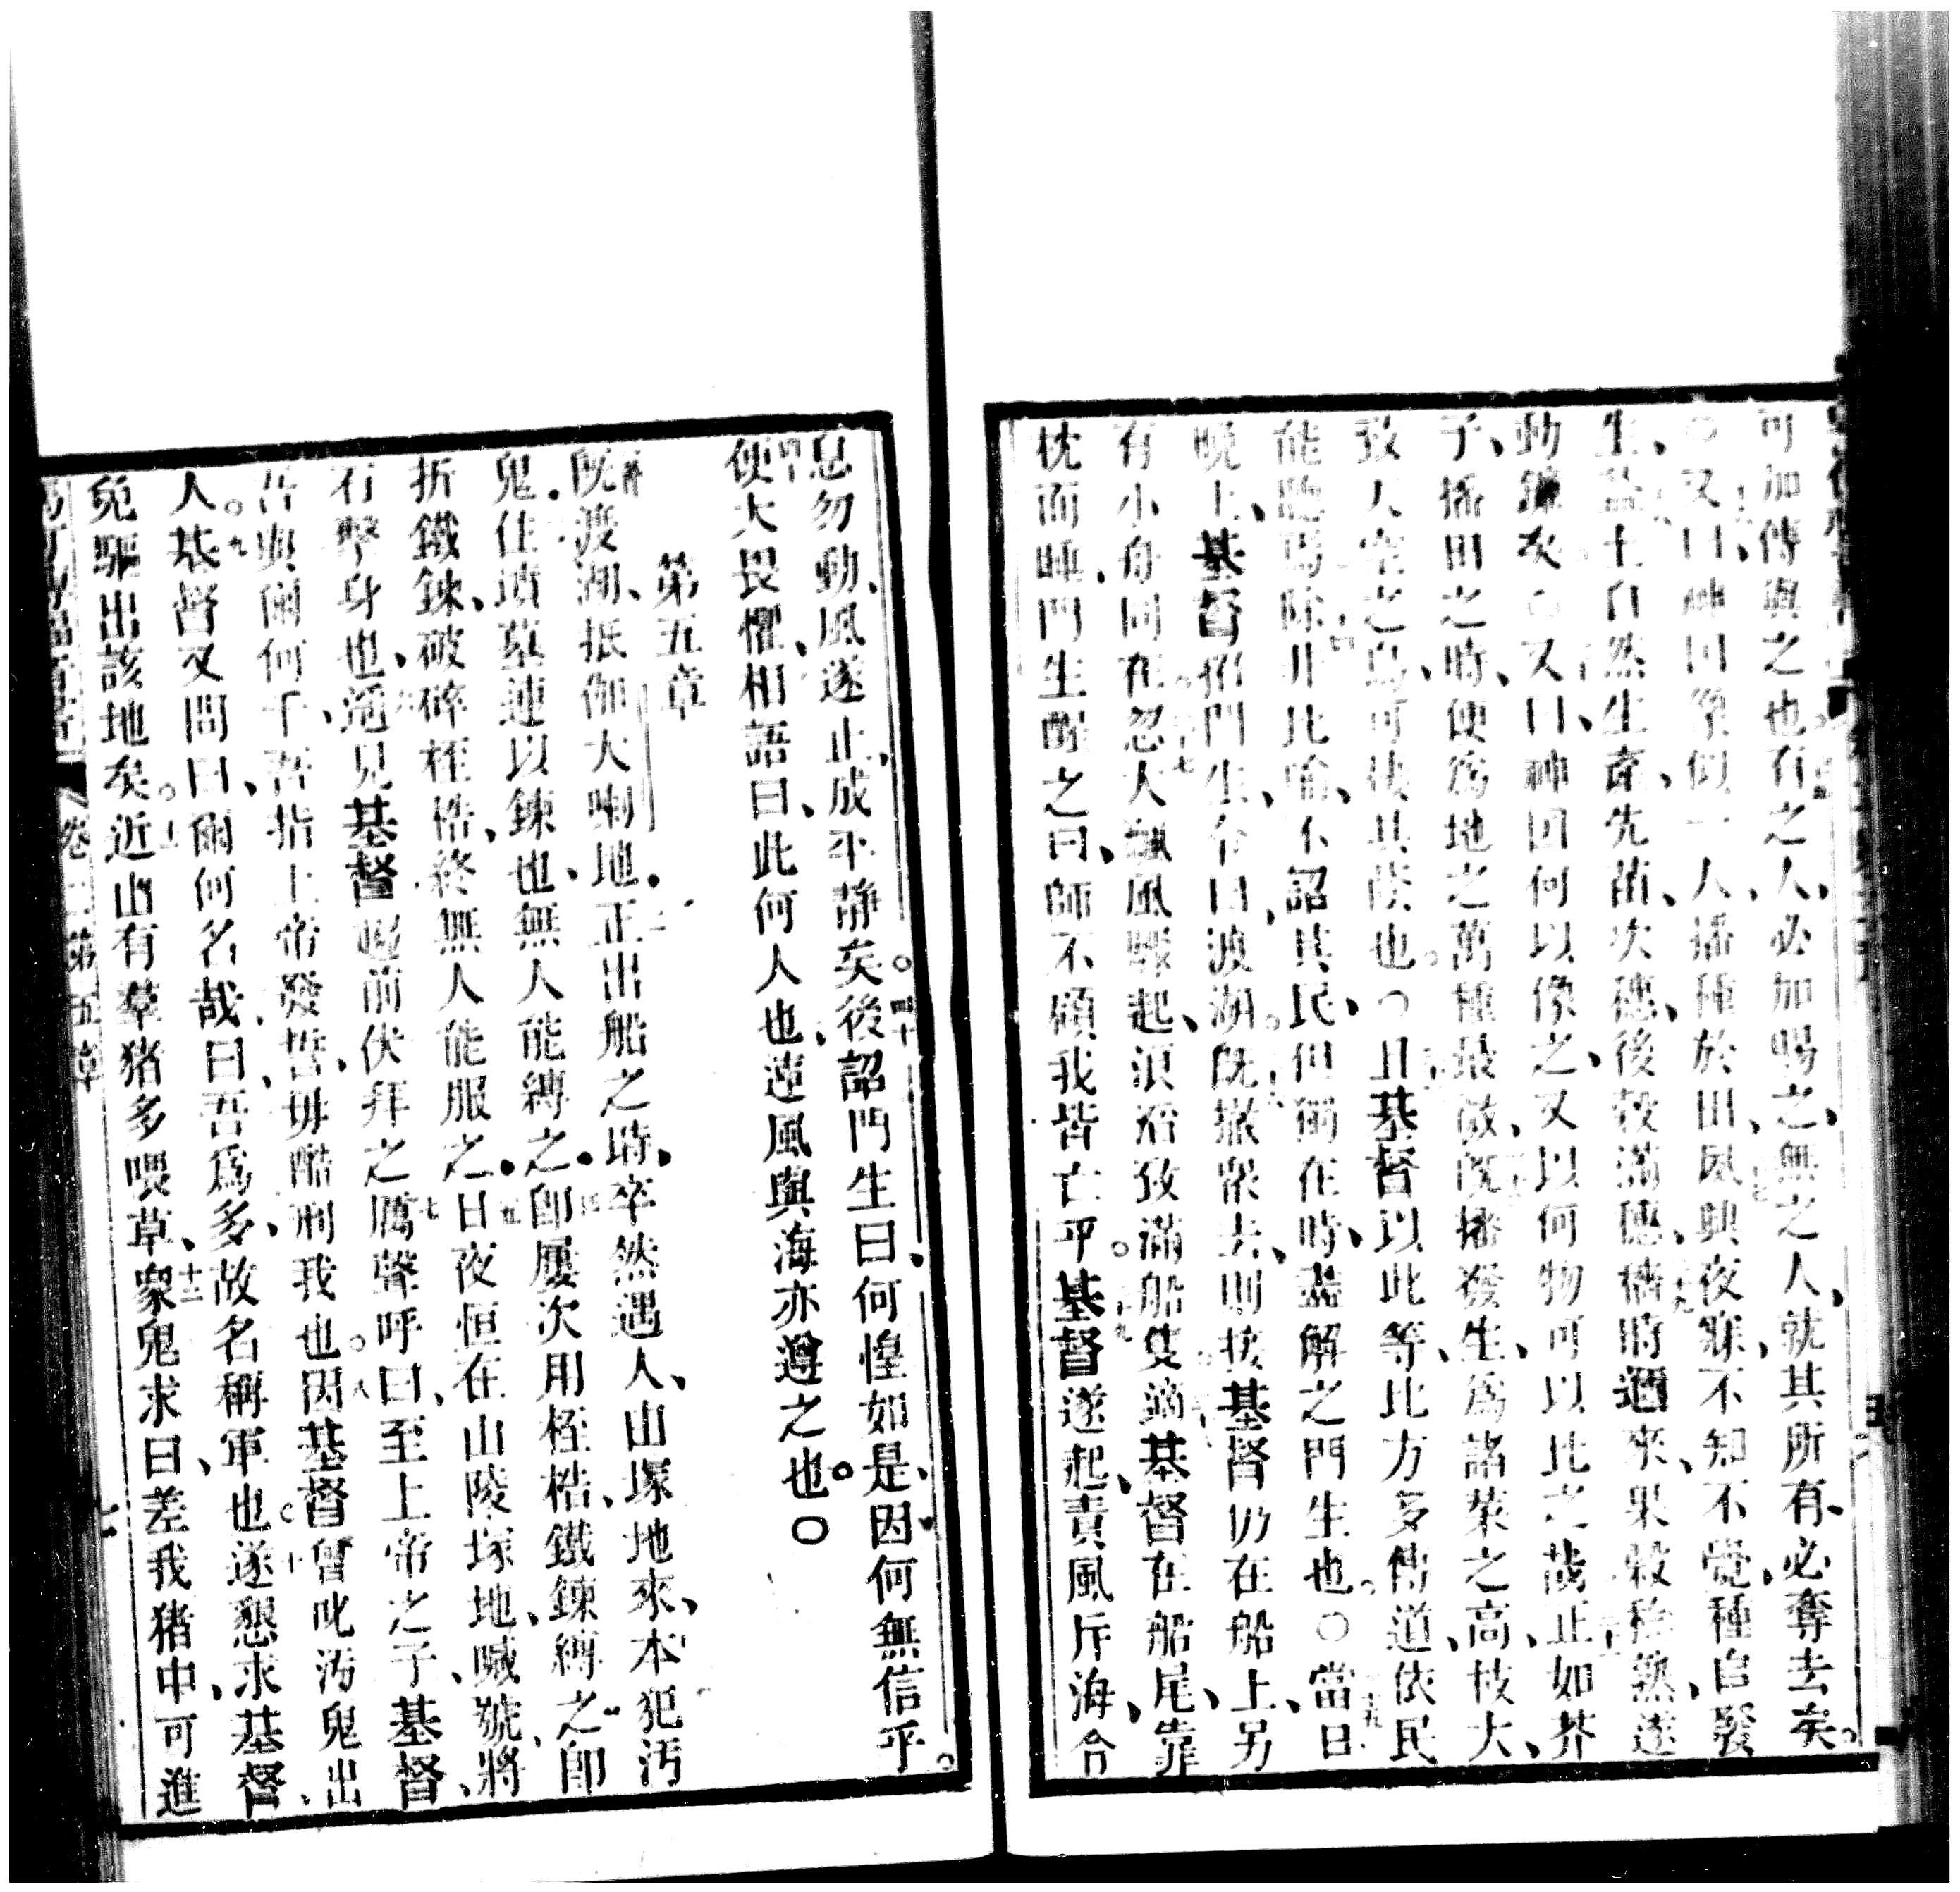 可加傳與之也有之人、必加賜之、無之人、就其所有、必奪去矣。
○又曰、神囯譬似一人、播種於田、夙興夜寐、不知不覺、種自發
生、蓋土自然生產、先苗、次穗、後穀滿穗、穡時遒來、果穀稔熟、遂
動鐮矣○又曰、神囯何以像之、又以何物可以比之哉正如芥
子、播田之時、便爲地之萬種最微、旣播發生、爲諸菜之高、枝大、
致天空之鳥、可棲其蔭也○且基督以此等比方多傳道依民
能聽焉除非比喻、不詔其民、但獨在時、盡解之門生也○當日
晚上、基督招門生、令曰、渡湖旣撤衆去、則接基督仍在船上、另
有小舟同在忽大飄風驟起、浪滔致滿船隻適基督在船尾、靠
枕而睡、門生醒之曰、師不顧我皆亡乎。基督遂起、責風斥海、令
息勿動、風遂止、成平靜矣後詔門生曰、何惶如是、因何無信乎
四一
便大畏懼、相語曰、此何人也、連風與海亦遵之也。○
第五章
旣渡湖、抵伽大喇地、正出船之時、卒然遇人、山塚地來、本犯汚
鬼、住墳墓連以鍊也、無人能縛之、卽屢次用桎梏、鐵鍊縛之卽
折鐵鍊、破碎桎梏、終無人能服之、日夜恒在山陵塚地、喊號、將
石擊身也、遙見基督趨前伏拜之厲聲呼曰、至上帝之子、基督、
吾與爾何干、吾指上帝發誓、毋酷刑我也因基督曾叱汚鬼出
人。基督又問曰、爾何名哉、曰、吾爲多、故名稱軍也遂懇求基督、
免驅出該地矣近山有羣猪多喂草、衆鬼求曰、差我猪中、可進
卷二第五章
七